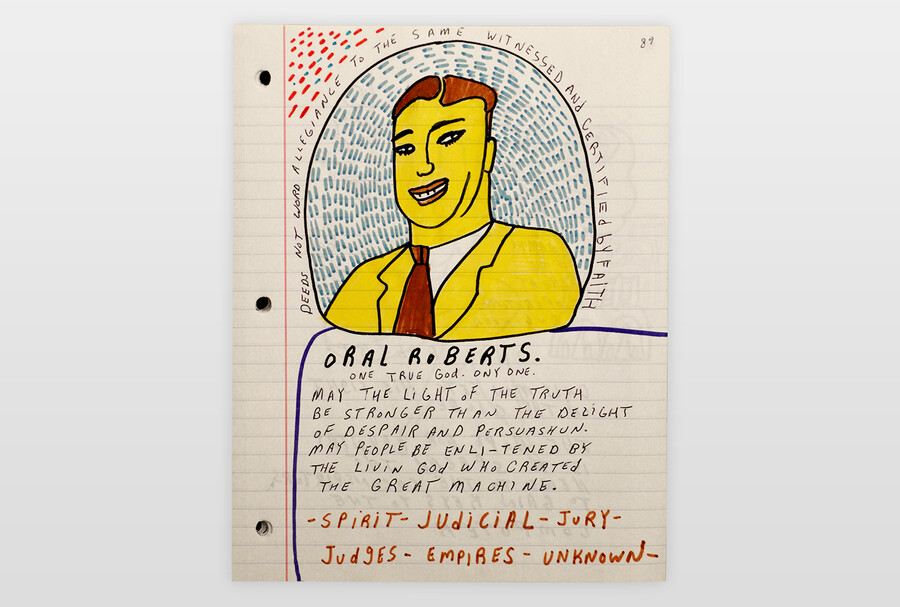 89
DEEDS NOT WORD ALLEGIANCE TO THE SAME WITNESSED AND CERTIFIED by FAITH
ORAL ROBERTS.
ONE TRUE GOD. ONY ONE.
MAY THE LIGHT OF THE TRUTH
BE STRONGER THAN THE DELIGHT
OF DESPAIR AND PERSUASHUN.
MAY PEOPLE BE ENLI-TENED BY
THE LIVIN GOD WHO CREATED
THE GREAT MACHINE.
-SPIRIT- JUDICIAL - JURY-
JUDGES - EMPIRES - UNKNOWN-